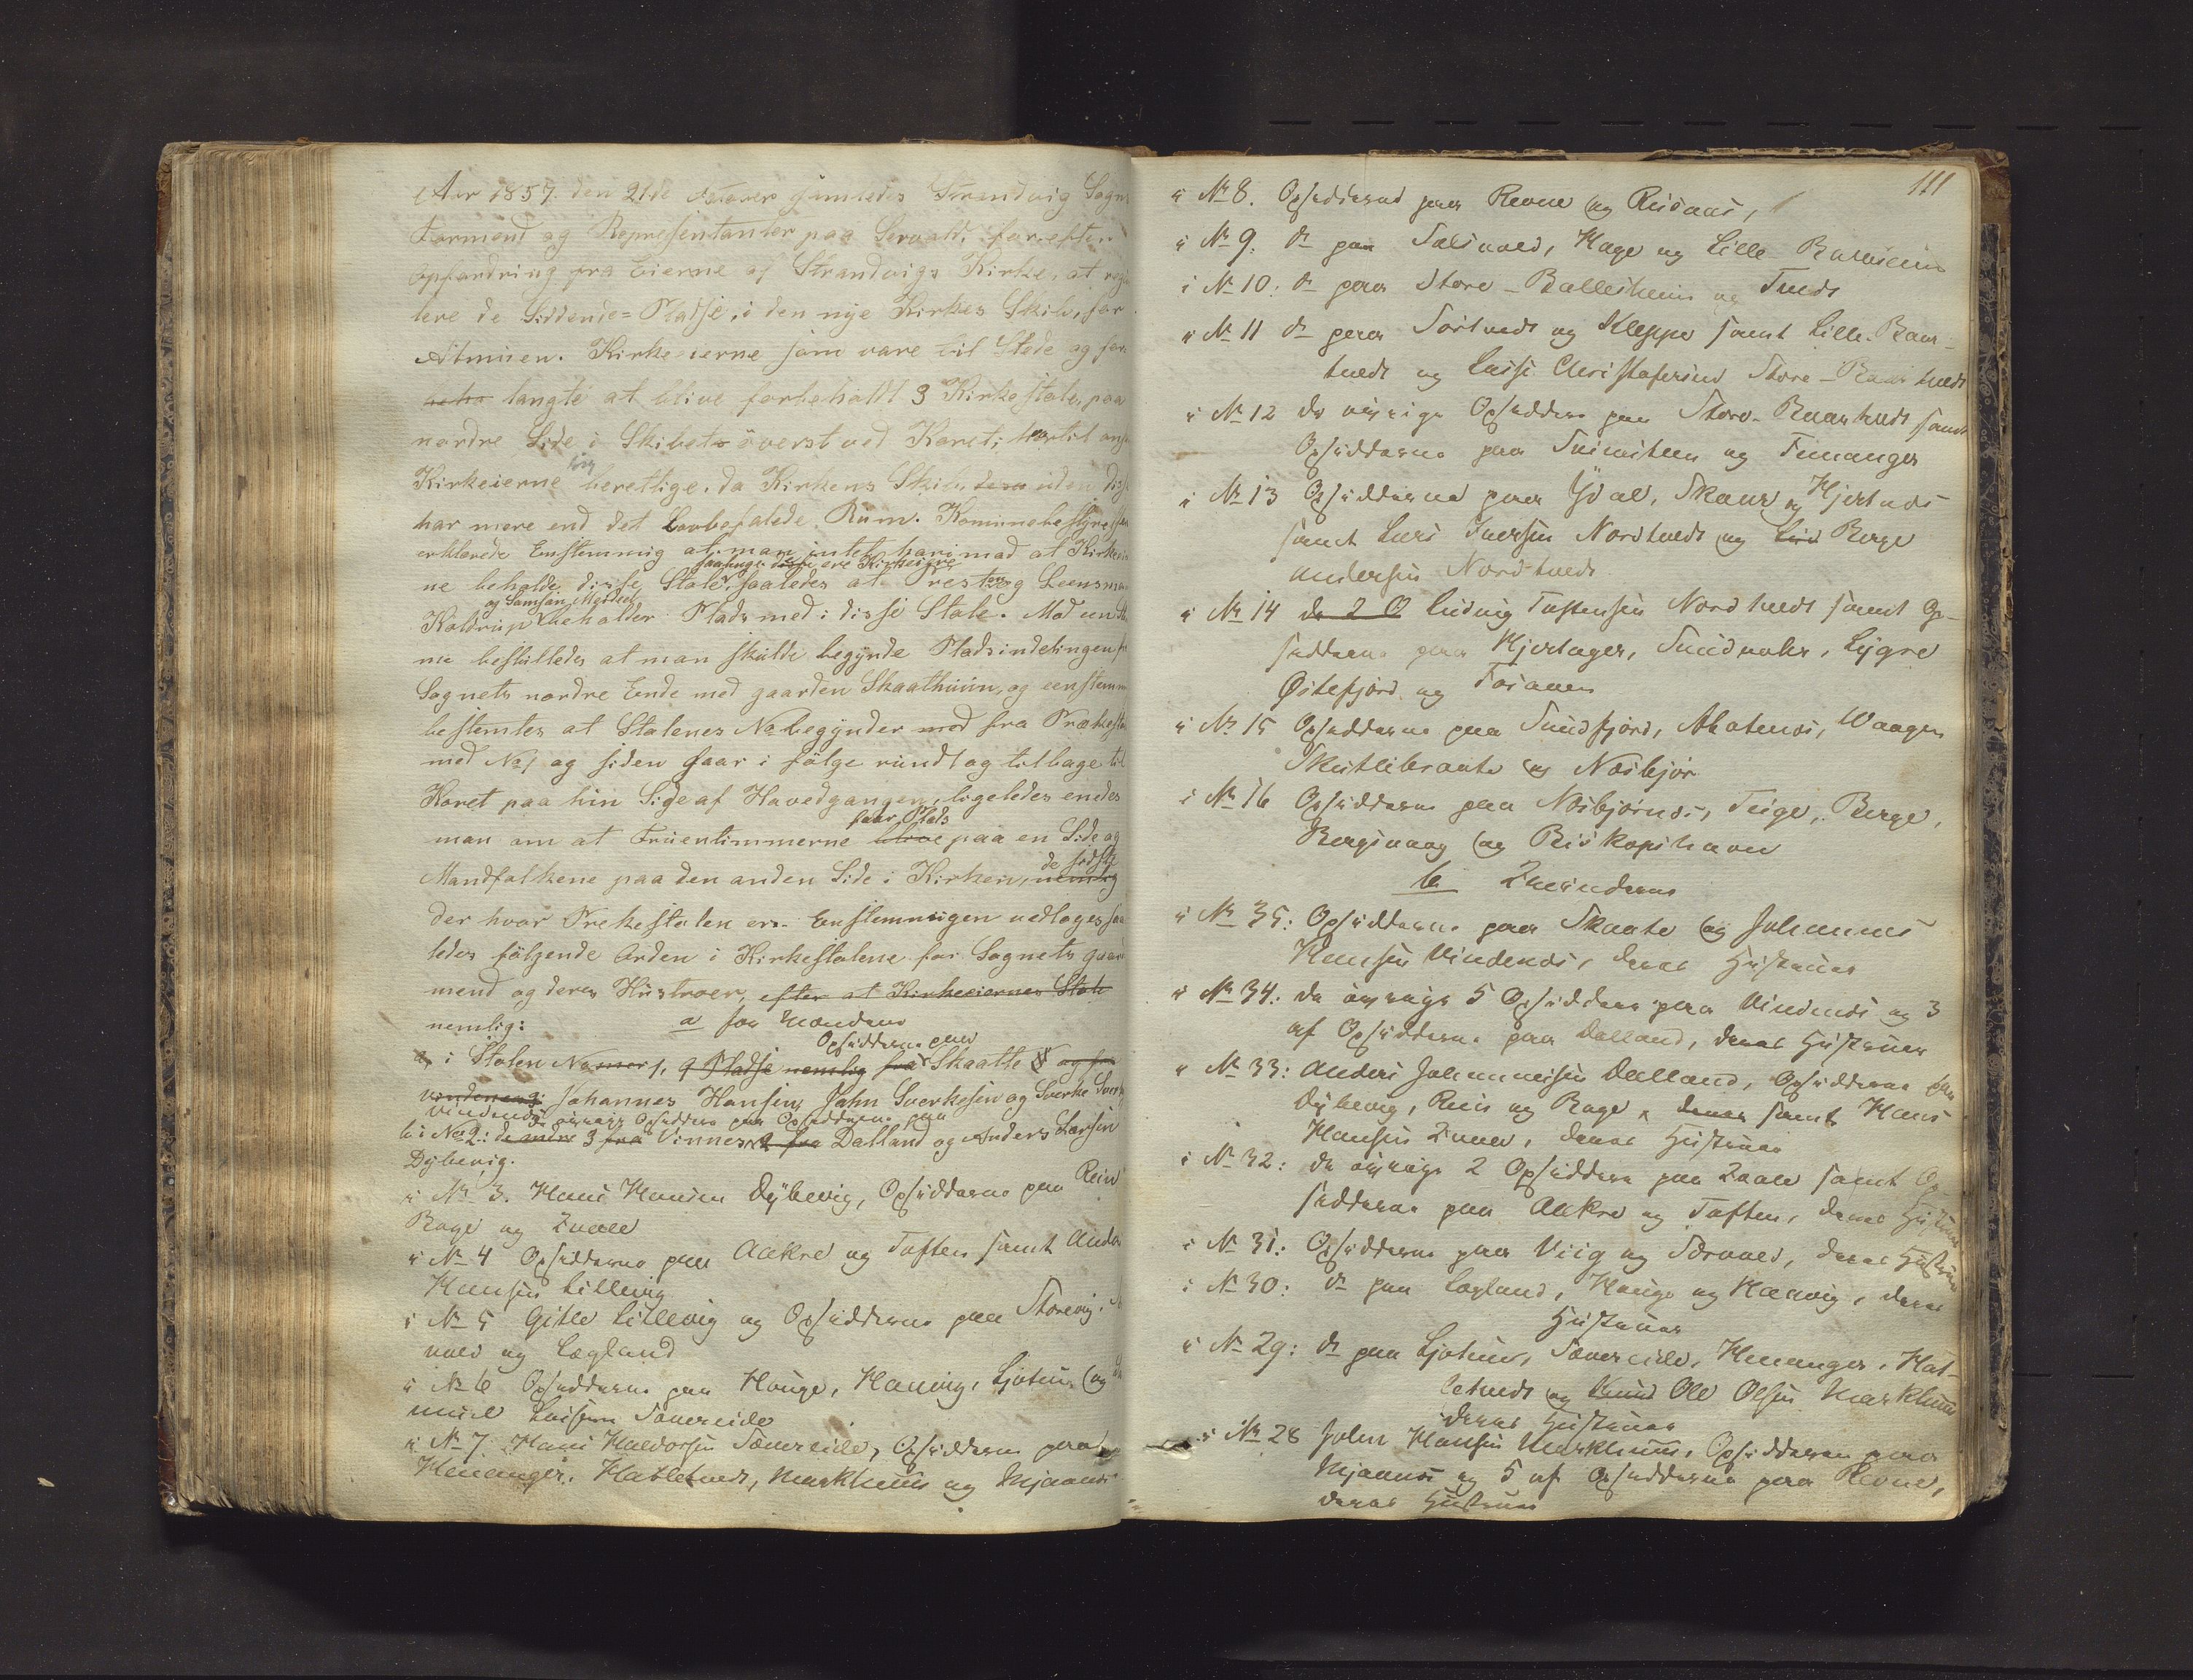 Aar 1857. den 21de samledes Strandvig Sogns
Formend og Representanter paa Servold, for efter
Opfordring fra Eierne af Strandvigs Kirke, at regu
lere de Siddende=Pladse, i den nye Kirkes Skib, for
Almuen. Kirkeeierne som vare til Stede og for
langte at blive forbeholdt 3 Kirkestole, paa
nordre Side i Skibet överst ved Koret; hertil ans
Kirkeierne berettige, da Kirkens Skib, uden diss
har mere end det Lovbefalede Rum. Kommunebestyrelsen
erklærede Enstemmig at man intet har imod at Kirkeeier
saalenge disse ere Kirkeeiere
ne beholde disse Stole, saaledes at Presten og Leensman
og Samson Mordal
Koldrup beholder Plads med i disse Stole. Mod
ne besluttedes at man skulde begynde Pladsindelingen fra
Sognets nordre Ende med gaarden Skaathuun, og eenstemm
bestemtes at Stolenes No begynder med fra Prækesto
med No 1 og siden gaar i fölge rundt og tilbage til
Koret paa hin Side af Hovedgangen, ligeledes enedes
faar Plads
man om at Fruentimmerne blive paa en Side og
de sidste
Mandfolkene paa den anden Side i Kirken, nemlig
der hvor Prekestolen er. Enstemmigen vedtoges saa
ledes fölgende Orden i Kirkestolene for Sognets gaar
mend og deres Hustroer, efter at Kirkeeiernes Stole
nemlig: a for Mændene
Opsidderne paa
i Stolen Nomer 1, 9 Pladse nemlig fra Skaatte og fra
Vindenes: Johannes Hansen, John Sverkesen og Sverke Sverk
Vindenes de övrige Opsiddere paa Opsidderne paa
i No 2: de andre 3 fra Vinnes, 2 fra Dalland og Anders Larsen
Dybevig.
i No 3. Hans Hansen Dybevig, Opsidderne paa Rein
Bage og Qvale
i No 4 Opsidderne paa Aakre og Toften samt Anders
Hansen Lillevig
i No 5 Gitle Lillevig og Opsidderne paa Storevig,
vold og Lægland
i No 6 Opsidderne paa Houge, Haavig, Ljotun og
Søvereide
i No 7. Hans Haldorsen Søvereide, Opsidderne paa
Henanger, Hatletvedt, Markhuus og Mjaanes
111
i No 8. Opsidderne paa Revne og Risnæs,
i No 9. do paa Solsvold, Hage og Lille Ballesheim
i No 10: do paa Store-Ballesheim og Tvedt
i No 11 do paa Sörtvedt og Kleppe samt Lille-Baar-
tvedt og Lassi Christofersen Store-Baartvedt
i No 12 de övrige Opsiddere paa Store-Baartvedt samt
Opsidderne paa og Femanger
i No 13 Opsidderne paa Ydal, Skaar og Hjertnæs
samt Lars Iversen Nordtvedt og Lars Berge
Andersen Nordtvedt
i No 14 de 2 O Ludvig Toftensen Nordtvedt samt Op-
sidderne paa Hjertager, Sundvoler, Lygre
Østefjord og Tosanen
i No 15 Opsidderne paa Sundfjord, Akatenæs, Waagen
Skutlebraate og Næsbjör
i No 16 Opsidderne paa Næsbjörnæs, Teige, Berge,
Bergsvaag og Biskopshavn
b Qvinderne
i No 35: Opsidderne paa Skaate og Johannes
Hansen Vindenæs, deres Hustruer
i No 34.: de övrige 5 Opsiddere paa Vindenæs og 3
af Opsidderne paa Dalland, deres Hustruer
i No 33: Anders Johannesen Dalland, Opsidderne paa
Dybevig, Rein og Bage, deres samt Hans
Hansen Qvale, deres Hustruer
i No 32: de övrige 2 Opsiddere paa Qvale samt Op
sidderne paa Aakre og Toften, deres Hustruer
i No 31: Opsidderne paa Viig og Særvold, deres Hustruer
i No 30: do paa Lægland, Houge og Haavig, deres
Hustruer
i No 29: do paa Ljotun, Søvereide, Henanger, Hat-
letvedt og Knud Ole Olsen Markhuus
deres Hustruer
i No 28 John Hansen Markhuus, Opsidderne paa
Mjaanæs og 5 af Opsidderne paa Revne,
deres Hustruer